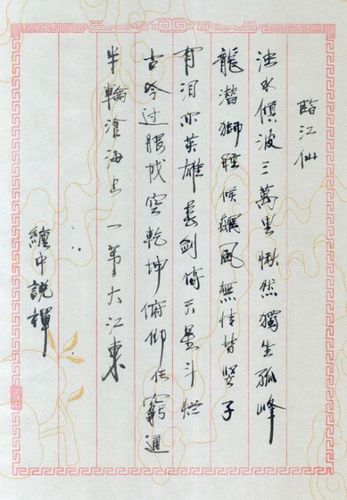 臨江仙
濁水傾波三萬里愀然獨坐孤峰
龍潛獅睡候飆風無情皆竖子
有泪亦英雄長劍倚天星斗烂
古今过眼成空乾坤俯仰任窮通
半輪滄海上一苇大江東
纏中說禪